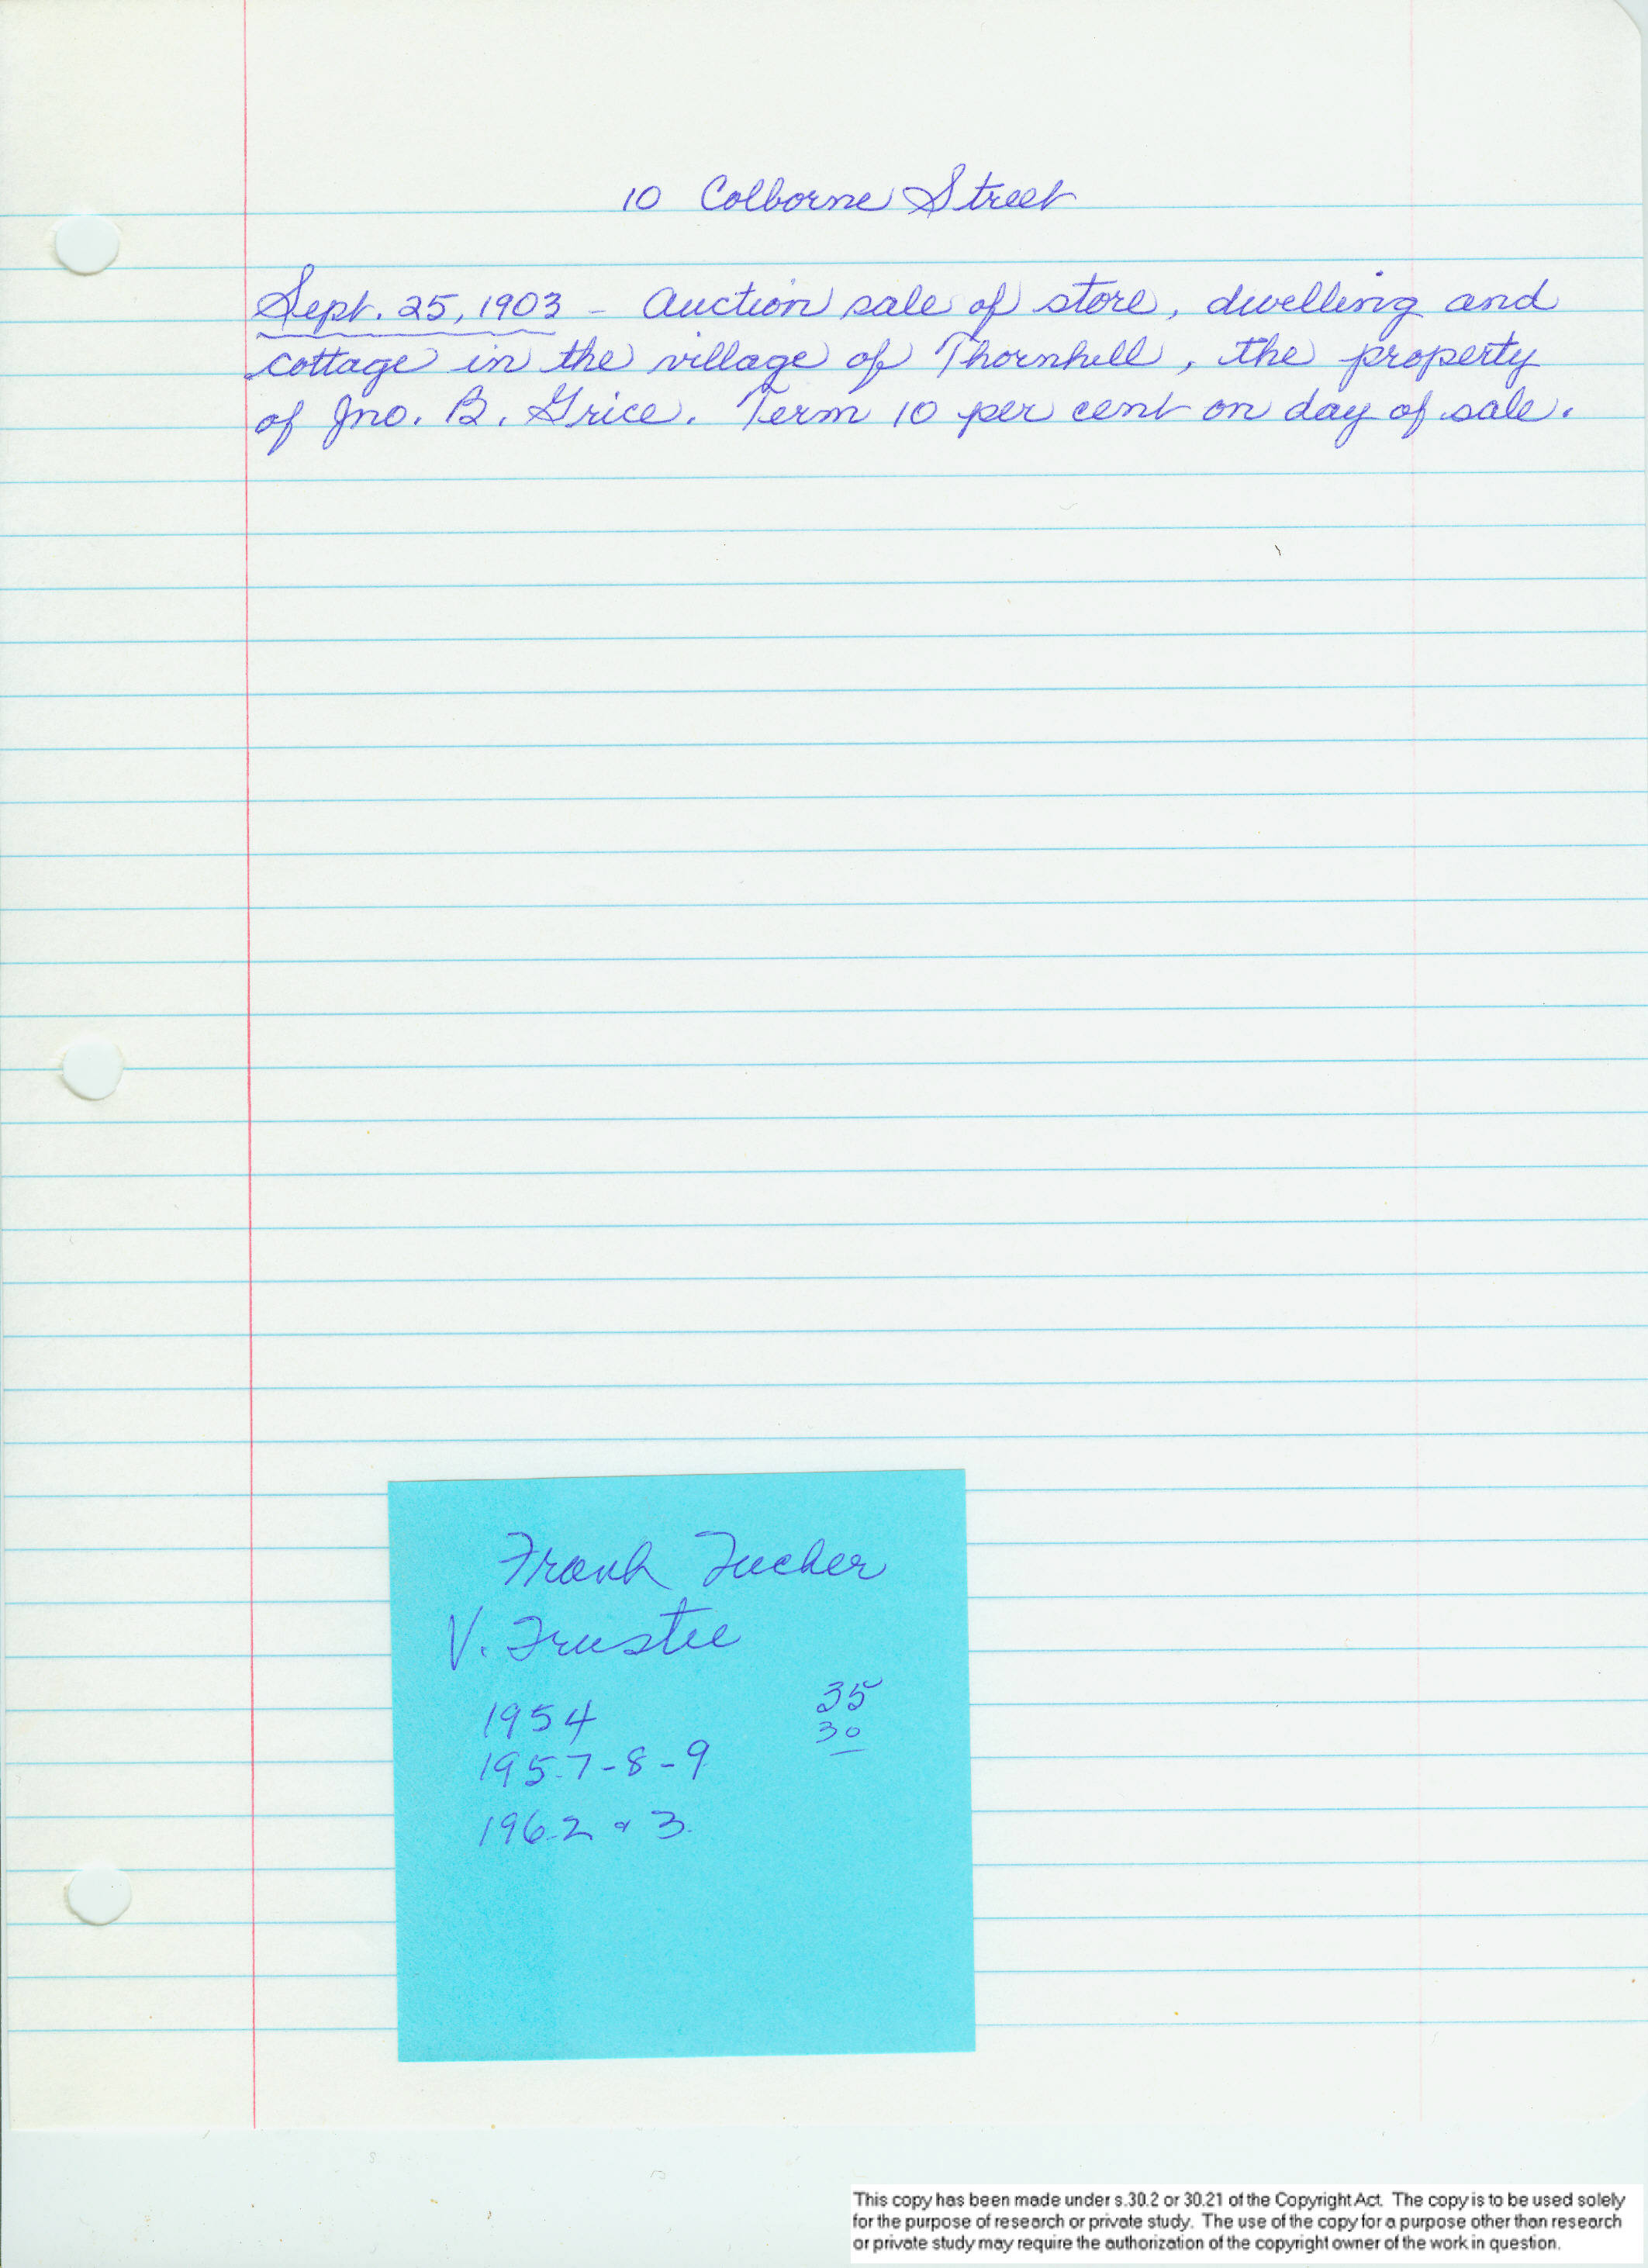 10 Colborne Street
Sept. 25, 1903 - Auction sale of store, dwelling and
cottage in the village of Thornhill, the property
of Jno. B. Grice. Term 10 per cent on day of sale.
Frank Tucker
V. Trustee
35
1954
30
1957-8-9
1962 & 3.
This copy has been made under s.30.2 or 30.21 of the Copyright Act. The copy is to be used solely
for the purpose of research or private study. The use of the copy for a purpose other than research
or private study may require the authorization of the copyright owner of the work in question.